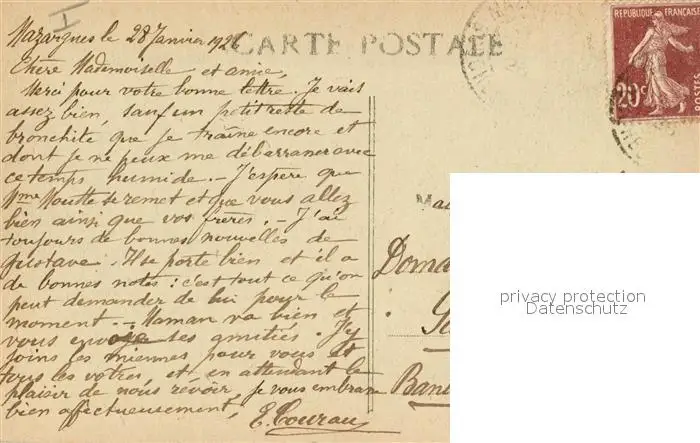 Mazargues le 28 Janvier 192
CARTE POSTALE
REPUBLIQUE FRANÇAISE
20c
POSTES
Chère Mademoiselle et amie,
Merci pour votre bonne lettre. Je vais
assez bien, sauf un petit reste de
bronchite que je traîne encore et
dont je ne peux me débarrasser avec
ce temps humide. — J'espère que
Mme Moutte se remet et que vous allez
bien ainsi que vos frères. — J'ai
toujours de bonnes nouvelles de
Gustave. Il se porte bien et il a
de bonnes notes : c'est tout ce qu'on
peut demander de lui pour le
moment. — Maman va bien et
vous envoie ses amitiés. J'y
joins les miennes pour vous et
tous les vôtres et en attendant le
plaisir de nous revoir je vous embrasse
bien affectueusement,
Ma
Doma
Ban
privacy protection
Datenschutz